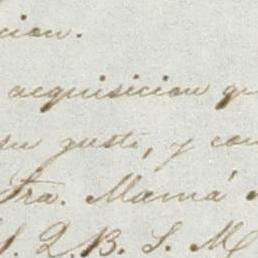 cion.
acquisicion qu
su gusto, y con
Fra. Mamá
S. Q. B. S. M